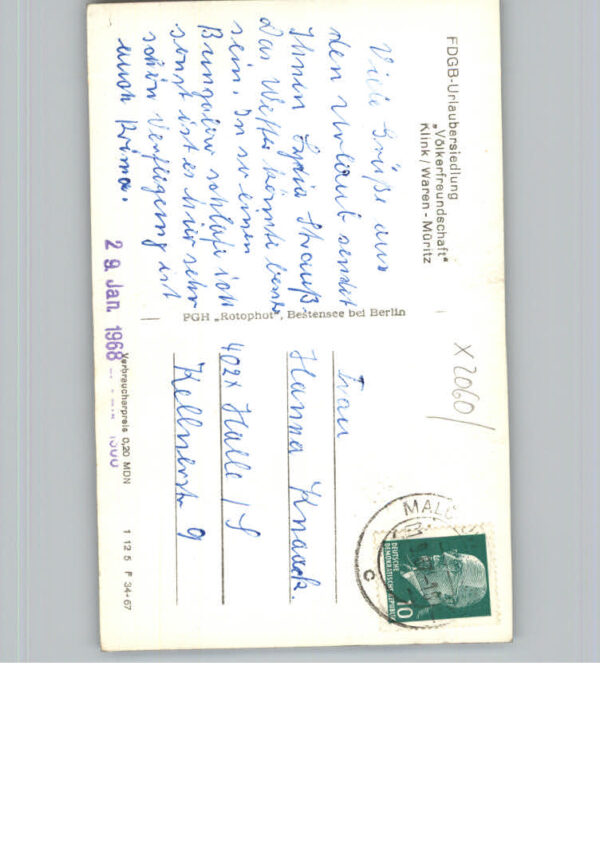 FDGB-Urlaubersiedlung
„Völkerfreundschaft"
Klink / Waren - Müritz
Viele Grüße aus
den Urlaub sendet
Ihnen Lydia Strauß.
Das Wetter könnte besser
sein. In so einen
Bungalow schlafe ich
sonst ist es hier sehr
schön Verpflegung ist
auch Prima.
29. Jan. 1968
PGH „Rotophot", Bestensee bei Berlin
X 2060/
MALC
DEUTSCHE
DEMOKRATISCHE REPUBLIK
10
C
Frau
Hanna Knaack.
402x Halle/S
Kellnerstr 9
Verbraucherpreis 0,20 MDN
1 12 5 P 34-67